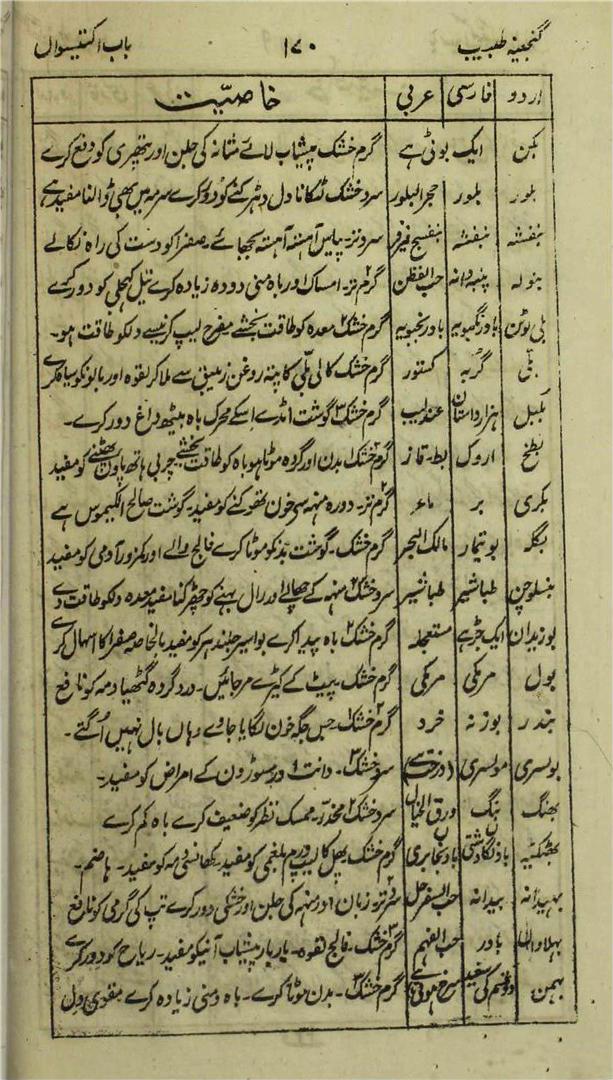 گنجینہ طبیب ۱۷۰ باب اکتیسواں
اردو فارسی عربی خاصیّت
بکن ایک بوٹی ہے گرم خشک پیشاب لائے مثانہ کی جلن اور پتھری کو دفع کرے
بلور بلور حجر البلور سرد خشک لٹکانا دل دہڑکنے کو دور کرے سرمہ میں بھی ڈالنا مفید ہے
بنفشہ بنفشہ بنفسج سرد تر۔ پیاس آہستہ آہستہ بجھائے۔ صفرا کو دست کی راہ نکالے
بنولہ پنبہ دانہ حب القطن گرم تر۔ امساک اور باہ منی دودہ زیادہ کرے تیل کہجلی کو دور کرے
بلی لوٹن بادرنگبویہ بادرنجبویہ گرم خشک ۲ معدہ کو طاقت بخشے مفرح لیپ کرنیسے دلکو طاقت ہو۔
بلی گربہ گرم خشک کالی بلّی کا پتہ روغن زنبق سے ملا کر لقوہ اور بالونکو سیاہ کرے
بلبل ہزار داستان عندلیب گرم خشک ۳ گوشت انڈے اسکے محرک باہ بیٹھ داغ دور کرے۔
بطخ اروک بط۔ قاز گرم خشک بدن اور گردہ موٹا ہو باہ کو طاقت بخشے چربی ہاتھ پاون پھٹنے کو مفید
بکری بز ماعز گرم تر۔ دودہ منہہ سی خون تھوکنے کو مفید۔ گوشت صالح الکیموس ہے
بگلہ بوتیمار مالک البحر گرم خشک۔ گوشت بدنکو موٹا کرے فالج والے اور کمزور آدمی کو مفید
بنسلوچن طباشیر طباشیر سرد خشک ۲ منہہ کے چھالے اور رال بہنے کو چھڑکنا مفید معدہ دلکو طاقت دے
بوزیدان ایک جڑ ہے مستعجلہ گرم خشک ۲ باہ پیدا کرے بواسیر جلندہر کو مفید بالخاصہ صفرا کا اسہال کرے
بول مرمکی مرمکی گرم خشک۔ پیٹ کے کیڑے مرجائیں۔ درد گردہ گٹھیا دمہ کو نافع
بندر بوزنہ گرم خشک جس جگہ خون لگایا جاوے وہاں بال نہیں اُگتے۔
بولسری مولسری (درخت ہے) سرد خشک۔ دانت اور مسوڑون کے امراض کو مفید۔
بھنگ بنگ ورق الخیال سرد خشک ۲ مخدر۔ ممسک نظر کو ضعیف کرے باہ کم کرے
بھٹکٹیہ بادنجان بری گرم خشک پھل کا لیپ ورم بلغمی کو مفید۔ کھانسی دمہ کو مفید۔ ہاضم۔
بہیدانہ بہیدانہ حب السفرجل سرد تر۔ زبان اور منہہ کی جلن اور خشکی دور کرے تپ کی گرمی کو نافع
بہلاوان بلادر حب الفہم گرم خشک۔ فالج لقوہ۔ بار بار پیشاب آنیکو مفید۔ ریاح کو دور کرے
بہمن دو قسم کی سفید سرخ ہوتی ہے گرم خشک۔ بدن موٹا کرے۔ باہ و منی زیادہ کرے مقوی دل